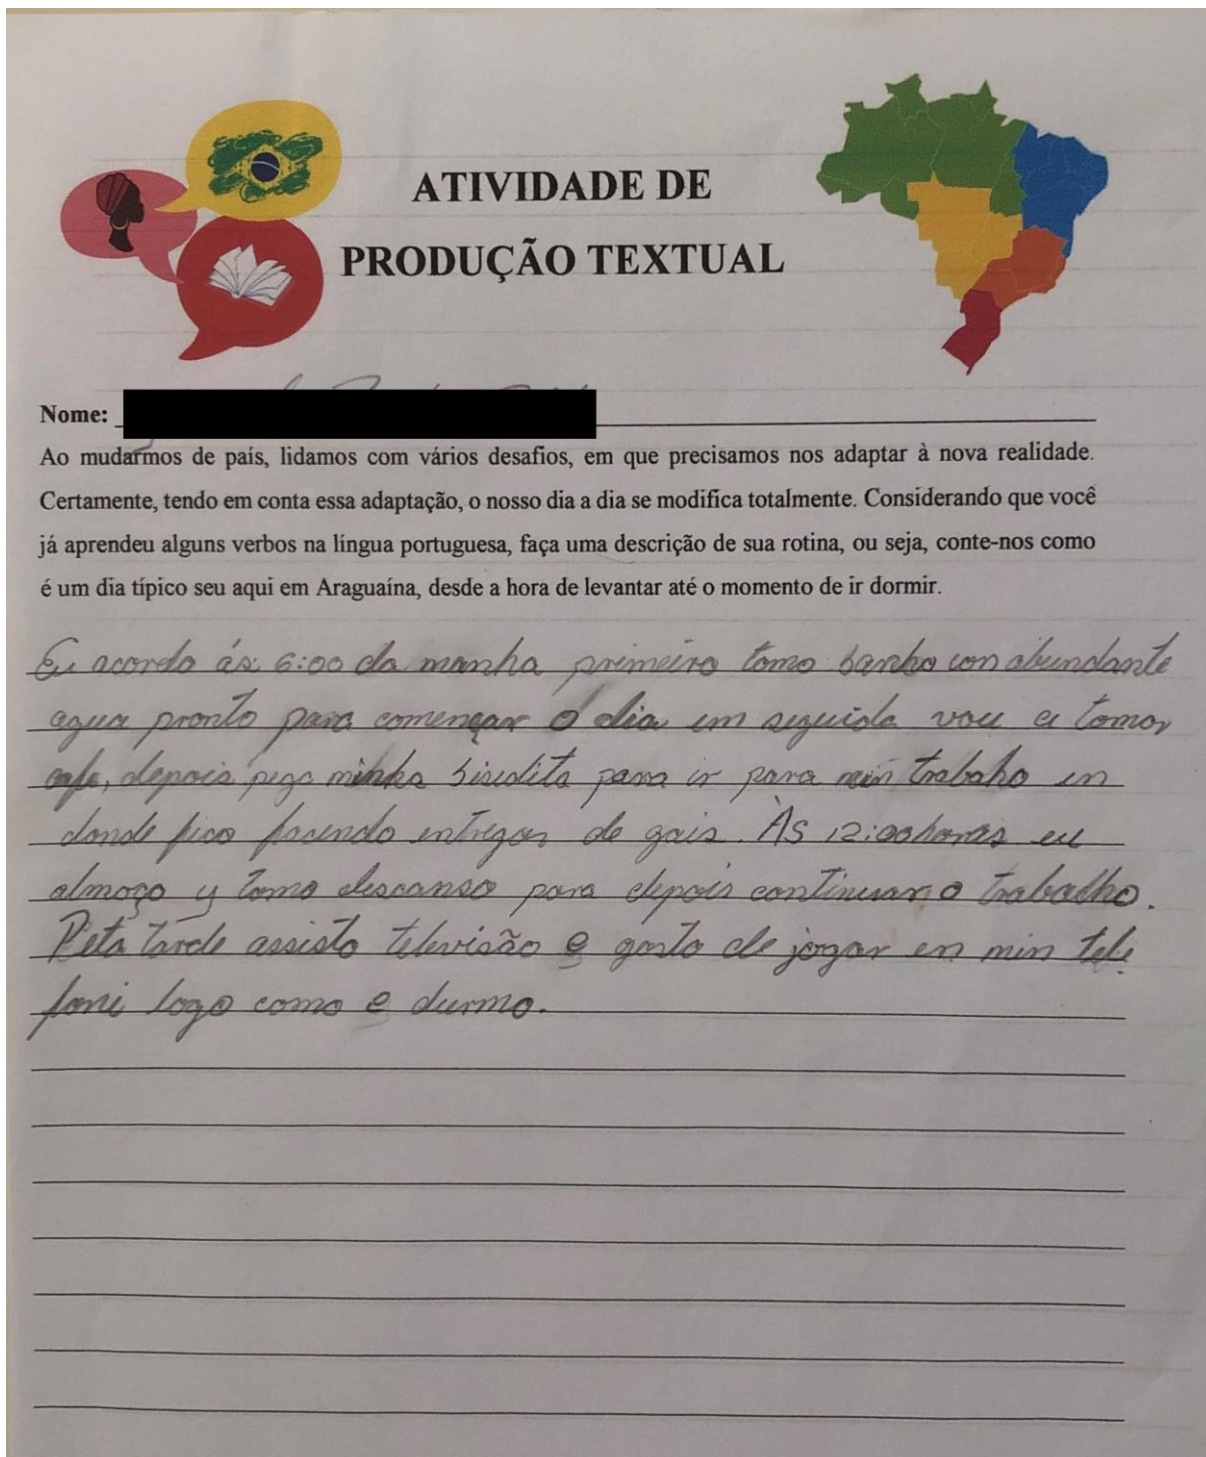 ATIVIDADE DE
PRODUÇÃO TEXTUAL
Nome:
Ao mudarmos de país, lidamos com vários desafios, em que precisamos nos adaptar à nova realidade.
Certamente, tendo em conta essa adaptação, o nosso dia a dia se modifica totalmente. Considerando que você
já aprendeu alguns verbos na língua portuguesa, faça uma descrição de sua rotina, ou seja, conte-nos como
é um dia típico seu aqui em Araguaína, desde a hora de levantar até o momento de ir dormir.
Eu acordo ás 6:00 da manha primeiro tomo banho con abundante
agua pronto para començar o dia em seguida vou a tomar
cafe, depois pego minha para ir para min trabaho en
donde fico facendo entregas de gais. Às 12:00 horas eu
almoço y tomo descanso para depois continuar o trabalho.
Pela tarde assisto televisão e gosto de jogar en min tele
foni logo como e durmo.